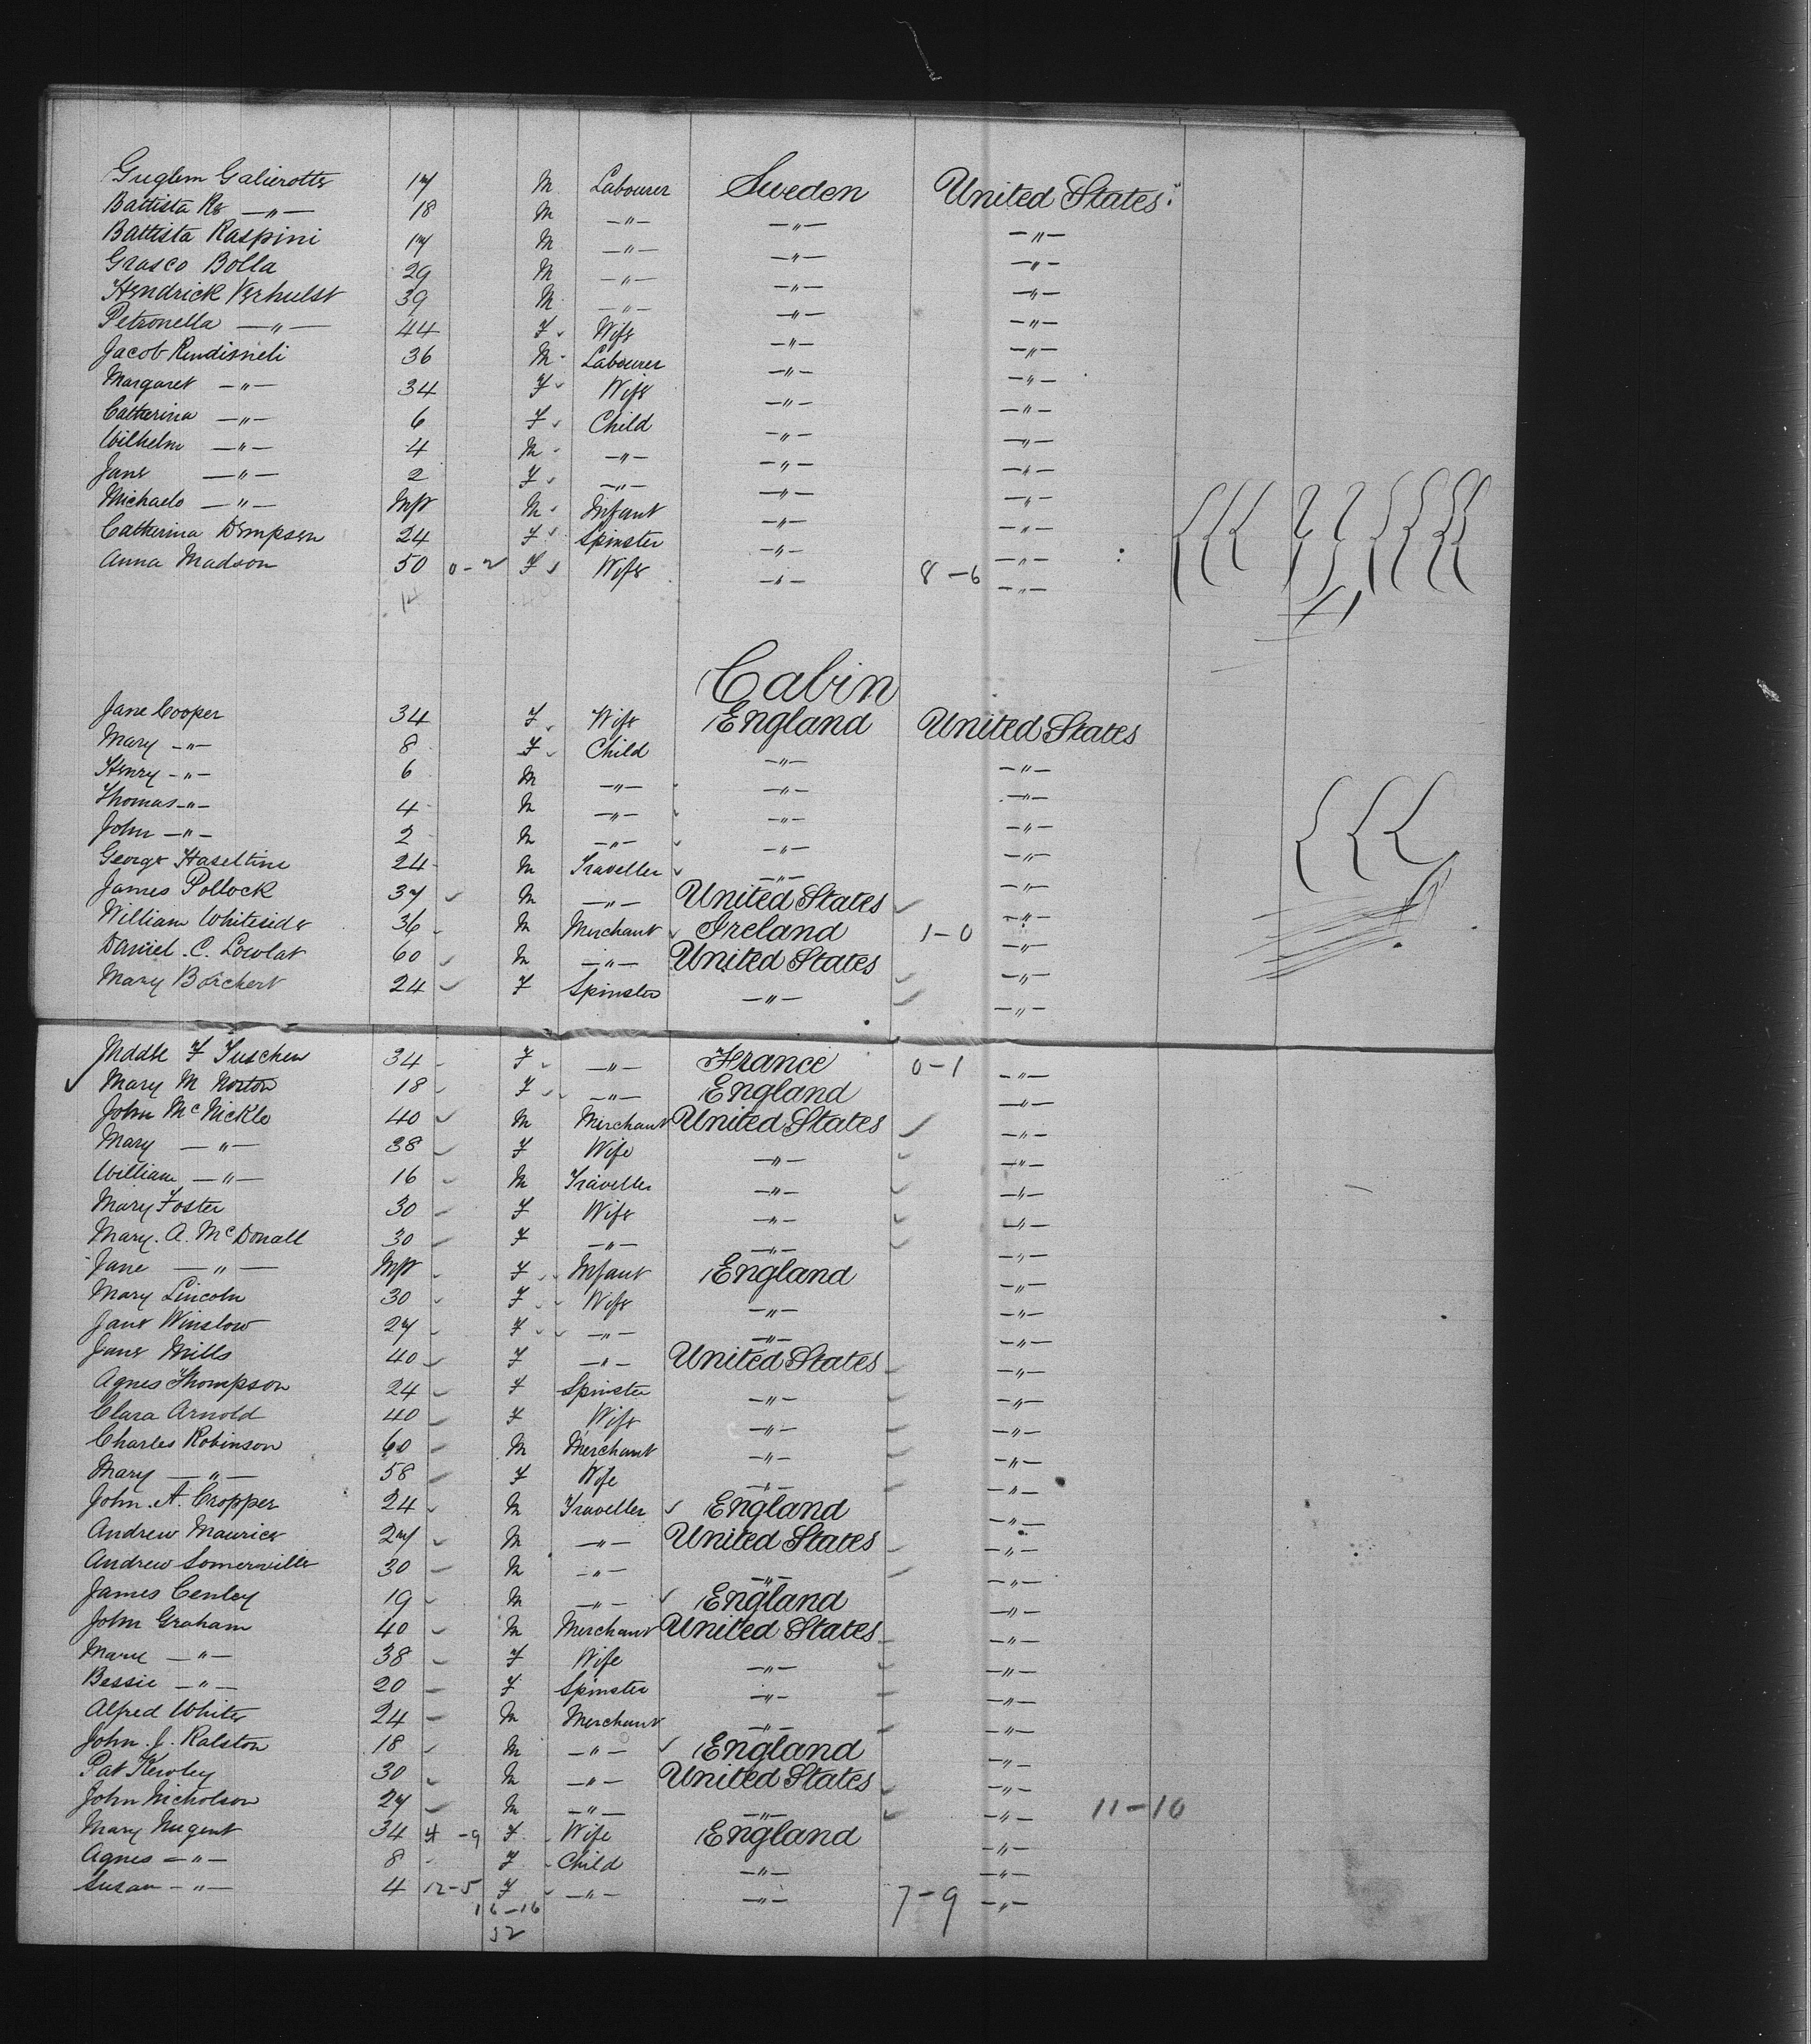 Guglem Galierotte 17 M Labourer Sweden United States
Battista Re —"— 18 M —"— —"— —"—
Battista Raspini 17 M —"— —"— —"—
Grasco Bolla 29 M —"— —"— —"—
Hendrick Verhulst 39 M —"— —"— —"—
Petronella —"— 44 F Wife —"— —"—
Jacob 36 M Labourer —"— —"—
Margaret —"— 34 F Wife —"— —"—
Catherina —"— 6 F Child —"— —"—
Wilhelm —"— 4 M —"— —"— —"—
Jane —"— 2 F —"— —"— —"—
Michaelo —"— Inft M Infant —"— —"—
Catharina Dempsen 24 F Spinster —"— —"—
Anna Madson 50 0-2 F Wife —"— 8-6 —"—
14
Cabin
Jane Cooper 34 F Wife England United States
Mary —"— 8 F Child —"— —"—
Henry —"— 6 M —"— —"— —"—
Thomas —"— 4 M —"— —"— —"—
John —"— 2 M —"— —"— —"—
George Haseltine 24 M Traveller —"— —"—
James Pollock 37 M —"— United States —"—
William Whiteside 36 M Merchant Ireland 1-0 —"—
Daniel. C. 60 M —"— United States —"—
Mary Borchert 24 F Spinster —"— —"—
F 34 F —"— France 0-1 —"—
Mary M Norton 18 F —"— England —"—
John McNickle 40 M Merchant United States —"—
Mary —"— 38 F Wife —"— —"—
William —"— 16 M Traveller —"— —"—
Mary Foster 30 F Wife —"— —"—
Mary. A. McDonall 30 F —"— —"— —"—
Jane —"— Inft F Infant England —"—
Mary Lincoln 30 F Wife —"— —"—
Jane Winslow 27 F —"— —"— —"—
Jane Mills 40 F —"— United States —"—
Agnes Thompson 24 F Spinster —"— —"—
Clara Arnold 40 F Wife —"— —"—
Charles Robinson 60 M Merchant —"— —"—
Mary —"— 58 F Wife —"— —"—
John. A. Cropper 24 M Traveller England —"—
Andrew Maurice 27 M —"— United States —"—
Andrew Somerville 30 M —"— —"— —"—
James Cenley 19 M —"— England —"—
John Graham 40 M Merchant United States —"—
Mary —"— 38 F Wife —"— —"—
Bessie —"— 20 F Spinster —"— —"—
Alfred White 24 M Merchant —"— —"—
John. J. Ralston 18 M —"— England —"—
Pat Kewley 30 M —"— United States —"—
John Nicholson 27 M —"— —"— —"— 11-10
Mary Nugent 34 4-9 F Wife England —"—
Agnes —"— 8 F Child —"— —"—
Susan —"— 4 12-5 F —"— —"— 7-9 —"—
16-16
52